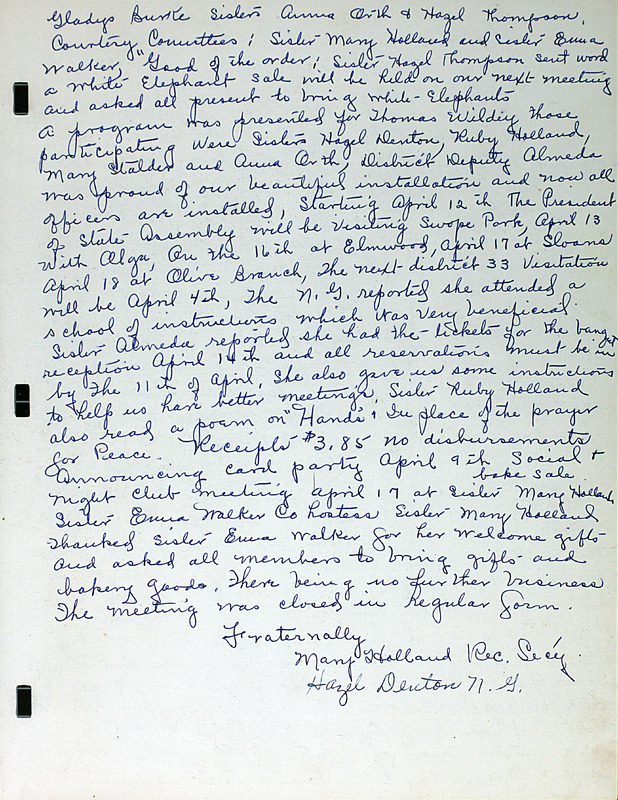 Gladys Burke Sisters Anna Orth & Hazel Thompson.
Courtesy Committees; Sister Mary Holland and Sister Emma
Walker, Good of the order; Sister Hazel Thompson sent word
a white Elephant Sale will be held on our next meeting
and asked all present to bring white-Elephants
a program was presented for Thomas Wildey those
participating were Sisters Hazel Denton, Ruby Holland,
Mary Stalder and Anna Orth, District Deputy Almeda
was proud of our beautiful installation and now all
officers are installed, Starting April 12th The President
of State Assembly will be visiting Swope Park, April 13
With Alga, On the 16th at Elmwood, April 17 at Sloans
April 18 at Olive Branch, The next district 33 Visitation
will be April 4th, The N.G. reported she attended a
school of instructions which was very beneficial.
Sister Almeda reported she had the tickets for the banquet
reception April 14th and all reservations must be in
by The 11th of April, She also gave us some instructions
to help us have better meetings. Sister Ruby Holland
also read a poem on "Hands" In place of the prayer
for Peace. Receipts $3.85 no disbursements
Announcing card party April 9th Social &
bake sale
night club meeting April 17 at Sister Mary Hollands
Sister Emma Walker Co hostess Sister Mary Holland
Thanked Sister Emma Walker for her welcome gifts
and asked all members to bring gifts and
bakery goods. There being no further business
The meeting was closed in regular form.
Fraternally
Mary Holland Rec. Sec'y.
Hazel Denton N. G.